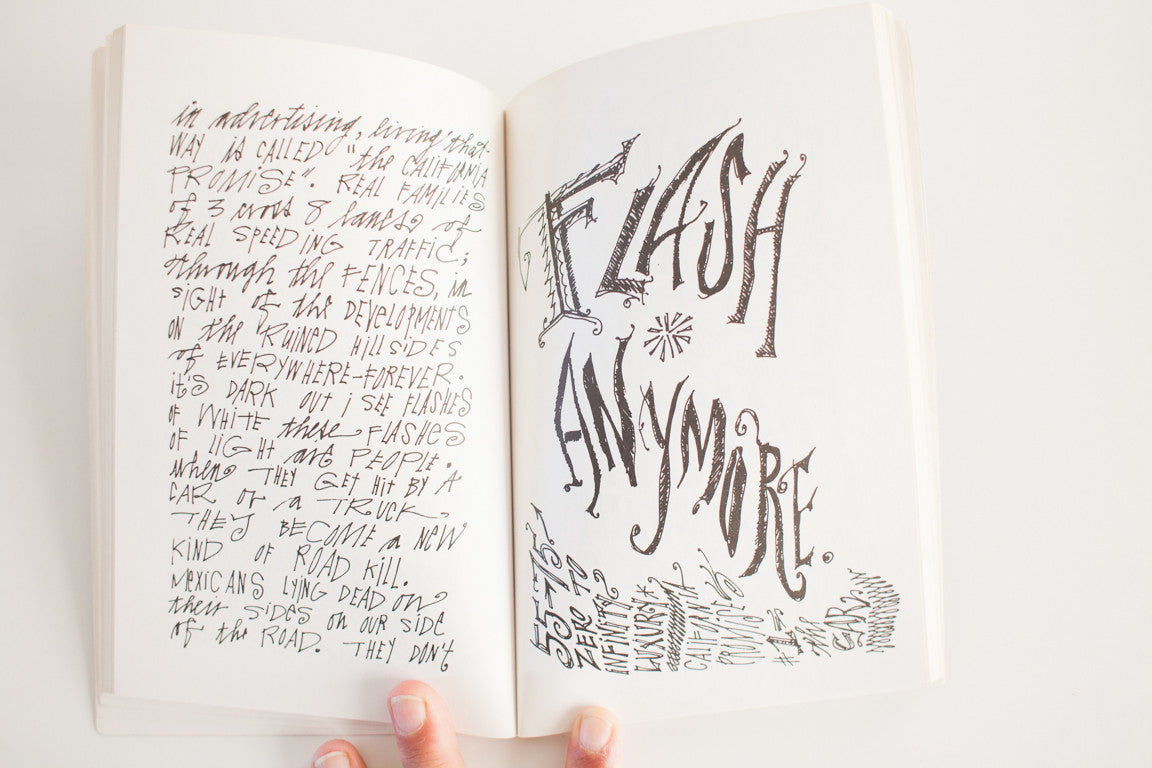 in advertising, living that
WAY is CALLED "the CALIFORNIA
PROMISE". REAL FAMILIES
of 3 cross 8 lanes of
REAL SPEEDING TRAFFIC;
through the FENCES, in
SIGHT of the DEVELOPMENTS
ON the RUINED HILLSIDES
of EVERYWHERE-FOREVER.
it's DARK out i SEE FLASHES
OF WHITE these FLASHES
OF LIGHT are PEOPLE.
when THEY GET Hit BY A
CAR or a TRUCK
THEY BECOME a NEW
KIND OF ROAD KILL.
MEXICANS LYING DEAD on
their SIDES on OUR SIDE
of the ROAD. THEY DON'T
FLASH
ANYMORE.
55-75
ZERO TO
INFINITY
LUXURY
CALIFORNIA
PROMISE
#1
the
CAR